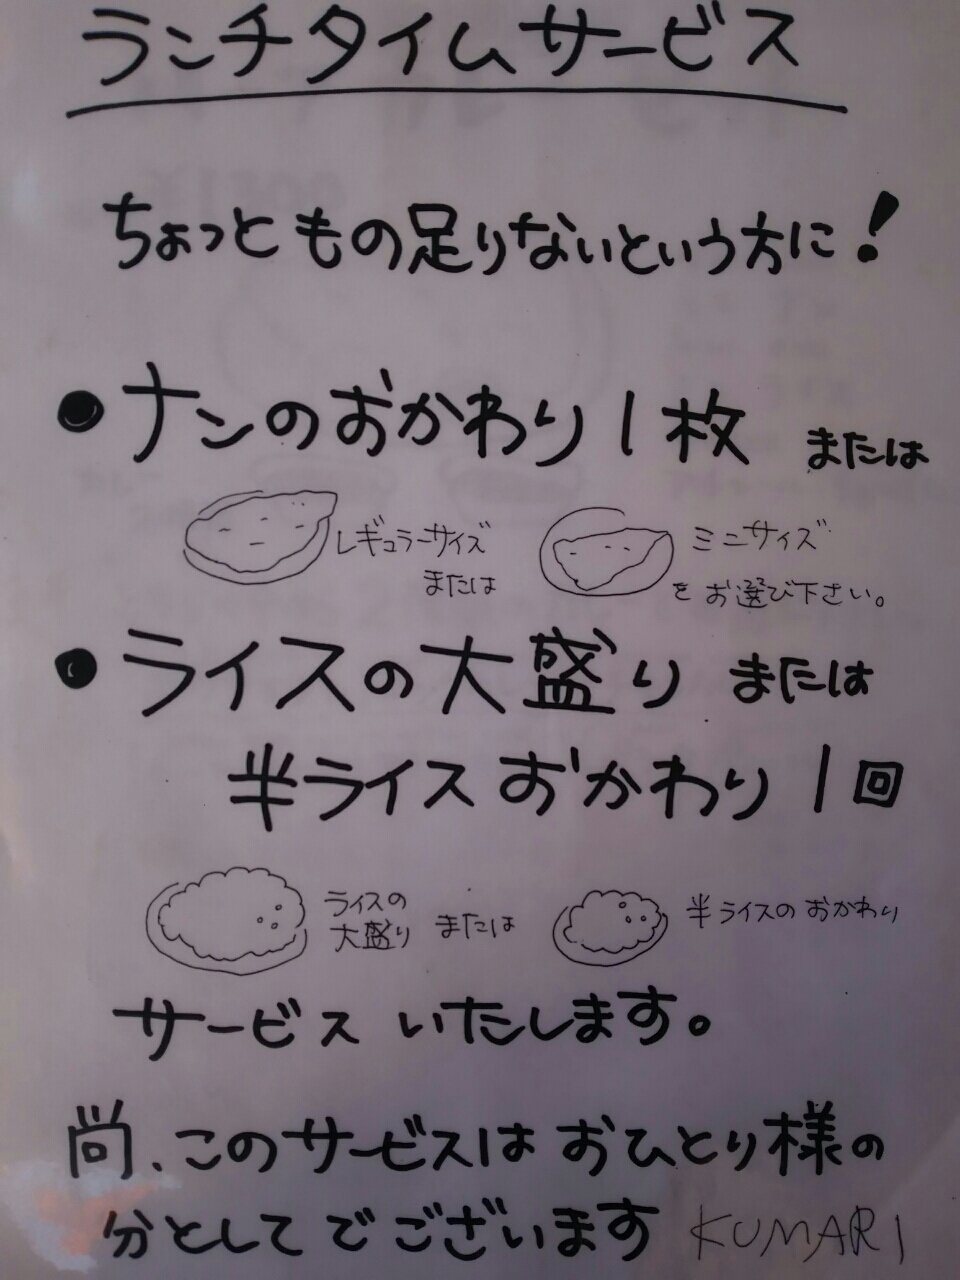 ランチタイムサービス
ちょっともの足りないという方に!
●ナンのおかわり1枚 または
レギュラーサイズ
または
ミニサイズ
をお選び下さい。
●ライスの大盛り または
半ライスおかわり1回
ライスの
大盛り または
半ライスのおかわり
サービスいたします。
尚、このサービスはおひとり様の
分としてでございます KUMARI